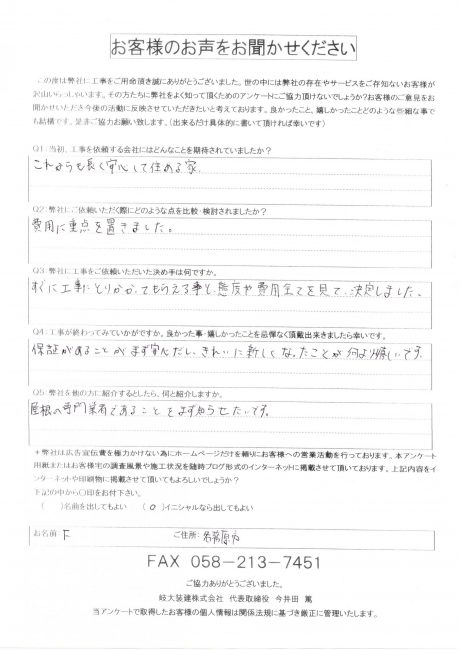 お客様のお声をお聞かせください
この度は弊社に工事をご用命頂き誠にありがとうございました。世の中には弊社の存在やサービスをご存知ないお客様が
沢山いらっしゃいます。その方たちに弊社をよく知って頂くためのアンケートにご協力頂けないでしょうか?お客様のご意見をお
聞かせいただき今後の活動に反映させていただきたいと考えております。良かったこと、嬉しかったことどのような些細な事で
も結構です。是非ご協力お願い致します。(出来るだけ具体的に書いて頂ければ幸いです)
Q1:当初、工事を依頼する会社にはどんなことを期待されていましたか?
これよりも長く安心して住める家
Q2:弊社にご依頼いただく際にどのような点を比較・検討されましたか?
費用に重点を置きました。
Q3:弊社に工事をご依頼いただいた決め手は何ですか。
すぐに工事にとりかかってもらえる事と態度や費用全てを見て決定しました。
Q4:工事が終わってみていかがですか。良かった事・嬉しかったことを忌憚なく頂戴出来きましたら幸いです。
保証があることがまず安心だし、きれいに新しくなったことが何より嬉しいです。
Q5:弊社を他の方に紹介するとしたら、何と紹介しますか。
屋根の専門業者であることをまず知らせたいです。
＊弊社は広告宣伝費を極力かけない為にホームページだけを頼りにお客様への営業活動を行っております。本アンケート
用紙またはお客様宅の調査風景や施工状況を随時ブログ形式のインターネットに掲載させて頂いております。上記内容をイ
ンターネットや印刷物に掲載させて頂いてもよろしいでしょうか?
下記の中から○印をお付下さい。
( )名前を出してもよい (○)イニシャルなら出してもよい
お名前:F ご住所:各務原市
FAX 058-213-7451
ご協力ありがとうございました。
岐大装建株式会社 代表取締役 今井田 篤
当アンケートで取得したお客様の個人情報は関係法規に基づき厳正に管理いたします。